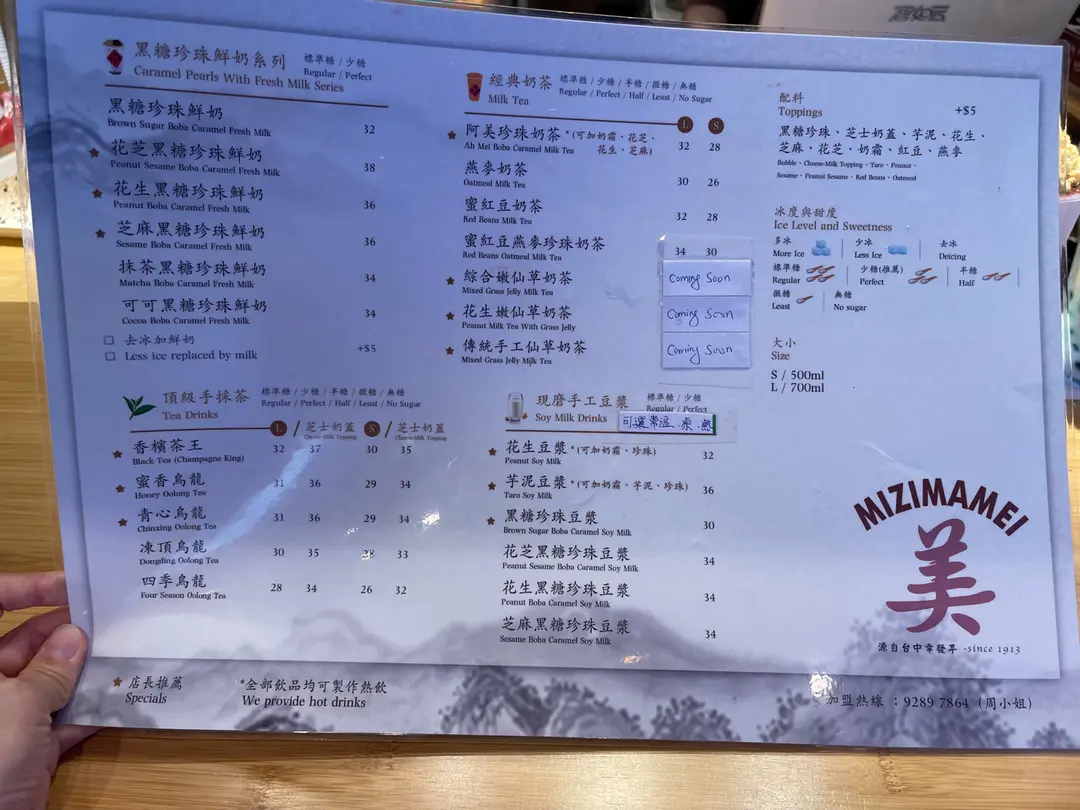 黑糖珍珠鮮奶系列 標準糖 / 少糖
Caramel Pearls With Fresh Milk Series Regular / Perfect
黑糖珍珠鮮奶
Brown Sugar Boba Caramel Fresh Milk 32
花芝黑糖珍珠鮮奶
Peanut Sesame Boba Caramel Fresh Milk 38
花生黑糖珍珠鮮奶
Peanut Boba Caramel Fresh Milk 36
芝麻黑糖珍珠鮮奶
Sesame Boba Caramel Fresh Milk 36
抹茶黑糖珍珠鮮奶
Matcha Boba Caramel Fresh Milk 34
可可黑糖珍珠鮮奶
Cocoa Boba Caramel Fresh Milk 34
去冰加鮮奶
Less ice replaced by milk +$5
頂級手採茶 標準糖 / 少糖 / 半糖 / 微糖 / 無糖
Tea Drinks Regular / Perfect / Half / Least / No Sugar
L / 芝士奶蓋 S / 芝士奶蓋
Cheese-Milk Topping Cheese-Milk Topping
香檳茶王 32 37 30 35
Black Tea (Champagne King)
蜜香烏龍 31 36 29 34
Honey Oolong Tea
青心烏龍 31 36 29 34
Chinxing Oolong Tea
凍頂烏龍 30 35 28 33
Dongding Oolong Tea
四季烏龍 28 34 26 32
Four Season Oolong Tea
經典奶茶 標準糖 / 少糖 / 半糖 / 微糖 / 無糖
Milk Tea Regular / Perfect / Half / Least / No Sugar
L S
阿美珍珠奶茶 *(可加奶霜、花芝、
Ah Mei Boba Caramel Milk Tea 花生、芝麻) 32 28
燕麥奶茶
Oatmeal Milk Tea 30 26
蜜紅豆奶茶
Red Beans Milk Tea 32 28
蜜紅豆燕麥珍珠奶茶
Red Beans Oatmeal Milk Tea 34 30
綜合嫩仙草奶茶 Coming Soon
Mixed Grass Jelly Milk Tea
花生嫩仙草奶茶 Coming Soon
Peanut Milk Tea With Grass Jelly
傳統手工仙草奶茶 Coming Soon
Mixed Grass Jelly Milk Tea
現磨手工豆漿 標準糖 / 少糖
Soy Milk Drinks Regular / Perfect
可選常溫、凍、熱
花生豆漿 *(可加奶霜、珍珠)
Peanut Soy Milk 32
芋泥豆漿 *(可加奶霜、芋泥、珍珠)
Taro Soy Milk 36
黑糖珍珠豆漿
Brown Sugar Boba Caramel Soy Milk 30
花芝黑糖珍珠豆漿
Peanut Sesame Boba Caramel Soy Milk 34
花生黑糖珍珠豆漿
Peanut Boba Caramel Soy Milk 34
芝麻黑糖珍珠豆漿
Sesame Boba Caramel Soy Milk 34
配料
Toppings +$5
黑糖珍珠、芝士奶蓋、芋泥、花生、
芝麻、花芝、奶霜、紅豆、燕麥
Bubble、Cheese-Milk Topping、Taro、Peanut、
Sesame、Peanut Sesame、Red Beans、Oatmeal
冰度與甜度
Ice Level and Sweetness
多冰 少冰 去冰
More Ice Less Ice Deicing
標準糖 少糖(推薦) 半糖
Regular Perfect Half
微糖 無糖
Least No sugar
大小
Size
S / 500ml
L / 700ml
MIZIMAMEI
美
源自台中幸發亭 -since 1913
店長推薦 *全部飲品均可製作熱飲
Specials We provide hot drinks
加盟熱線 : 9289 7864 (周小姐)